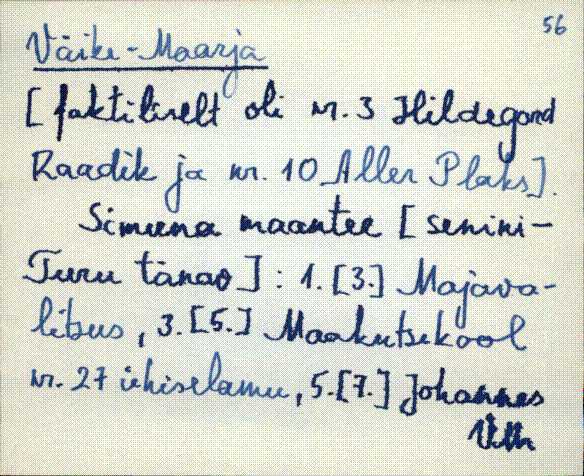 56
Väike-Maarja
[faktiliselt oli nr. 3 Hildegard
Raadik ja nr. 10 Aller Plaks].
Simuna maantee [senini-
Turu tänav]: 1.[3.] Majava-
litsus, 3.[5.] Maakutsekool
nr. 27 ühiselamu, 5.[7.] Johannes